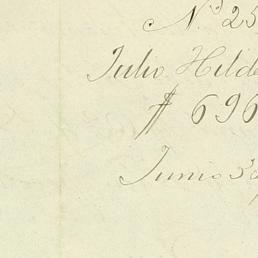 No 25
Julio Hilde
$ 696
Junio 30